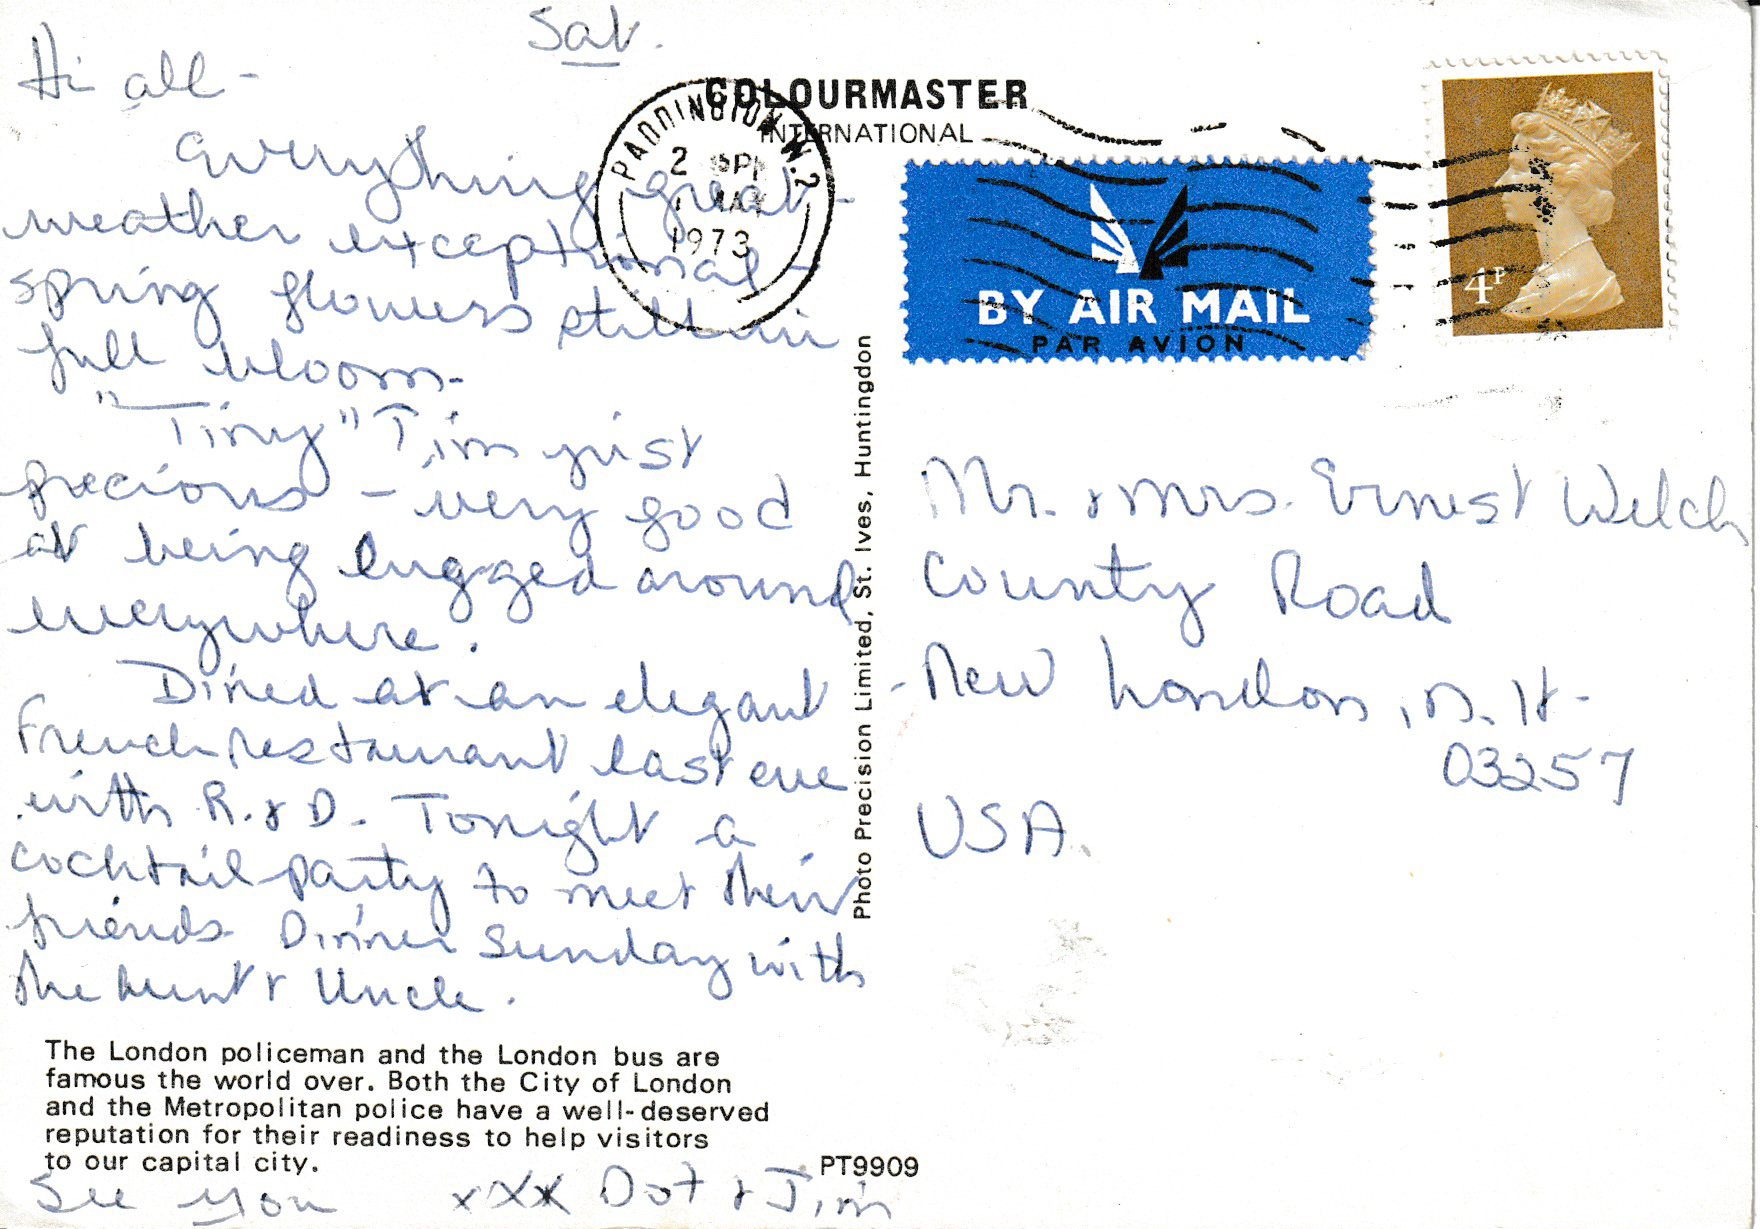 Sat.
Hi all -
Everything great -
weather exceptional -
spring flowers still in
full bloom -
"Tiny" Tim just
precious - very good
at being lugged around
everywhere.
Dined at an elegant
French restaurant last eve
with R. & D. Tonight a
cocktail party to meet their
friends Dinner Sunday with
the Aunt & Uncle.
The London policeman and the London bus are
famous the world over. Both the City of London
and the Metropolitan police have a well-deserved
reputation for their readiness to help visitors
to our capital city.
PT9909
See you xxx Dot & Jim
Photo Precision Limited, St. Ives, Huntingdon
COLOURMASTER
INTERNATIONAL
PADDINGTON W.2
2 PM
MAY
1973
BY AIR MAIL
PAR AVION
4P
Mr. & Mrs. Ernest Welch
County Road
New London, N. H.
03257
USA.